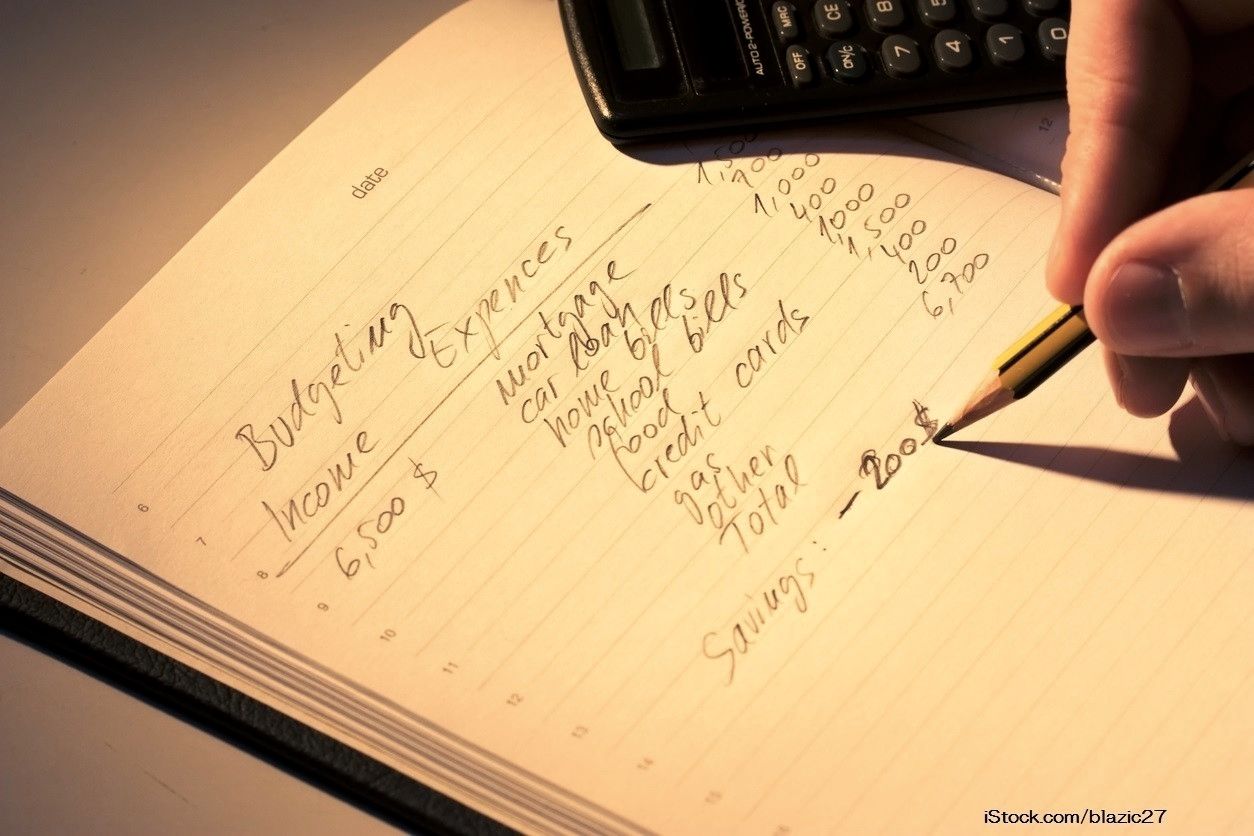 AUTO 2-POWER
MRC CE 8 5
OFF ON/C 7 4 1 0
12
date
Budgeting
Income Expences
6,500 $
mortgage 1,500
car loan 700
home bills 1,000
school bills 400
food 1000
credit cards 1,500
gas 400
other 200
Total 6,700
Savings: - 200 $
6
7
8
9
10
11
12
13
14
15
iStock.com/blazic27